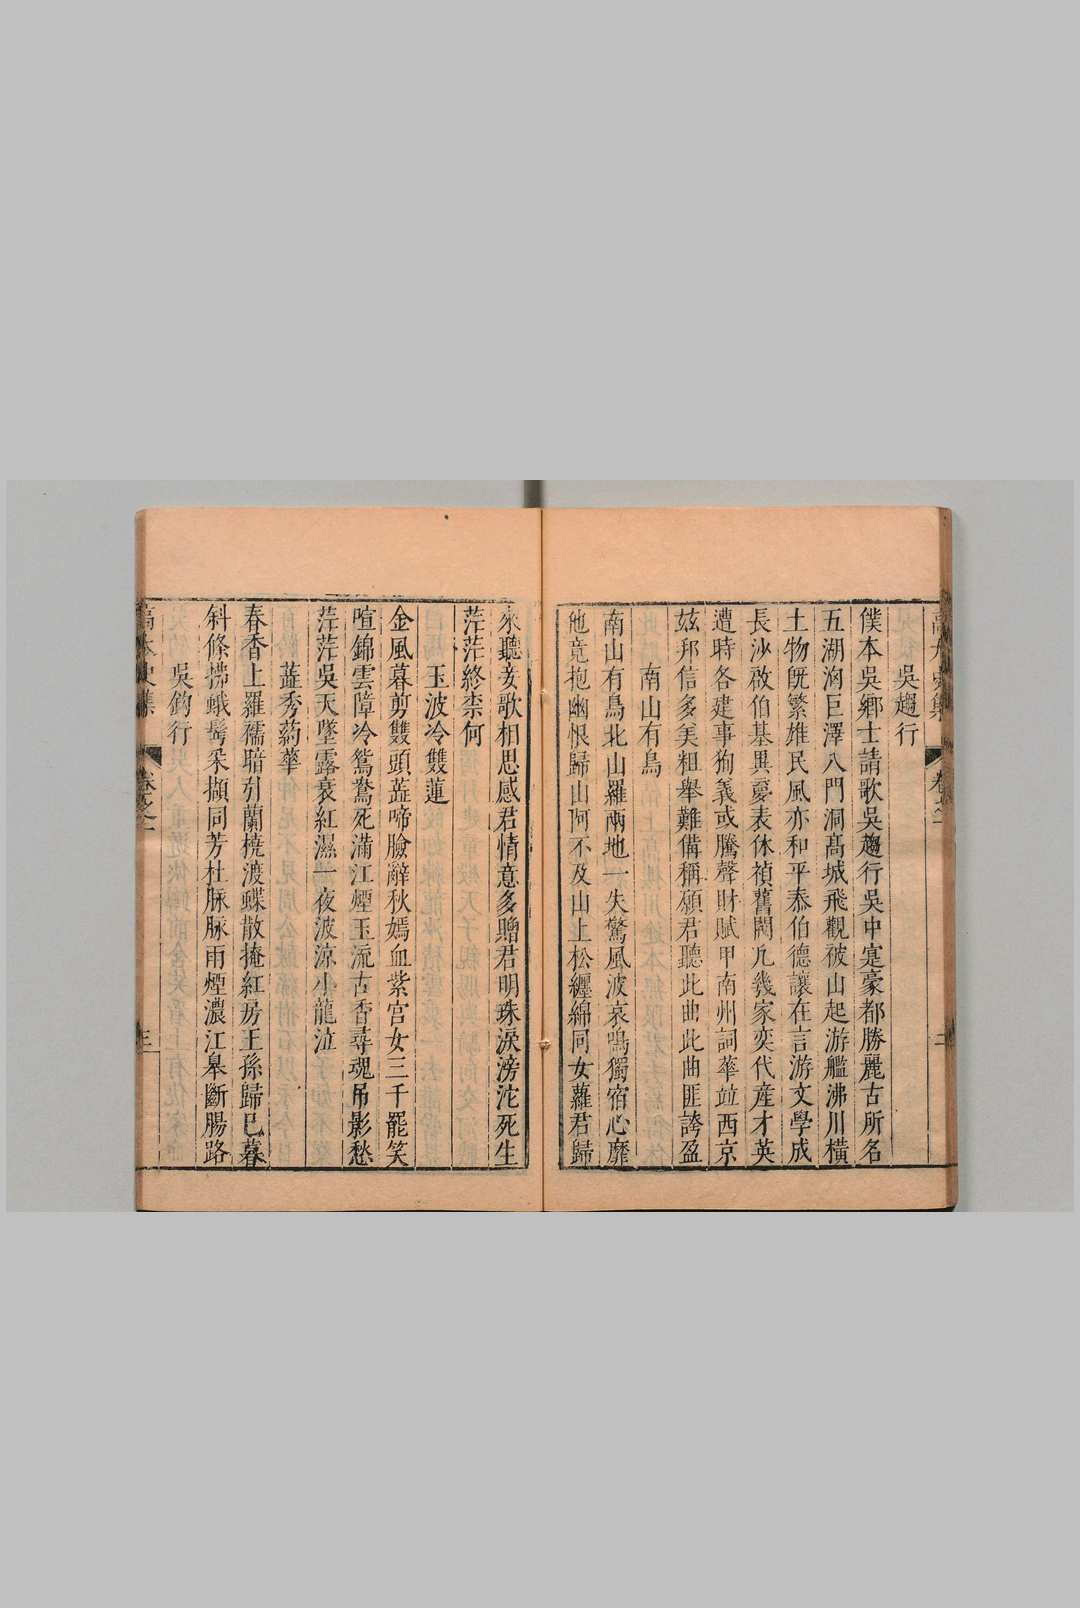 吳趨行
僕本吳鄉士請歌吳趨行吳中寔豪都勝麗古所名
五湖洶巨澤八門洞高城飛觀被山起游艦沸川橫
土物旣繁雄民風亦和平泰伯德讓在言游文學成
長沙啟伯基異夢表休禎舊閥凡幾家奕代產才英
遭時各建事狥義或騰聲財賦甲南州詞華竝西京
玆邦信多美粗舉難備稱願君聽此曲此曲匪誇盈
南山有鳥
南山有鳥北山羅兩地一失驚風波哀鳴獨宿心靡
他竟抱幽恨歸山阿不及山上松纏綿同女蘿君歸
來聽妾歌相思感君情意多贈君明珠淚滂沱死生
茫茫終柰何
玉波冷雙蓮
金風暮剪雙頭蕋啼臉辭秋嫣血紫宮女三千罷笑
喧錦雲障冷鴛鴦死滿江煙玉流古香尋魂吊影愁
茫茫吳天墜露衰紅濕一夜波涼小龍泣
蕋秀葯華
春香上羅襦暗引蘭橈渡蝶散掩紅房王孫歸已暮
斜條拂蛾鬂采擷同芳杜脉脉雨煙濃江皋斷腸路
吳鉤行
卷之一
三